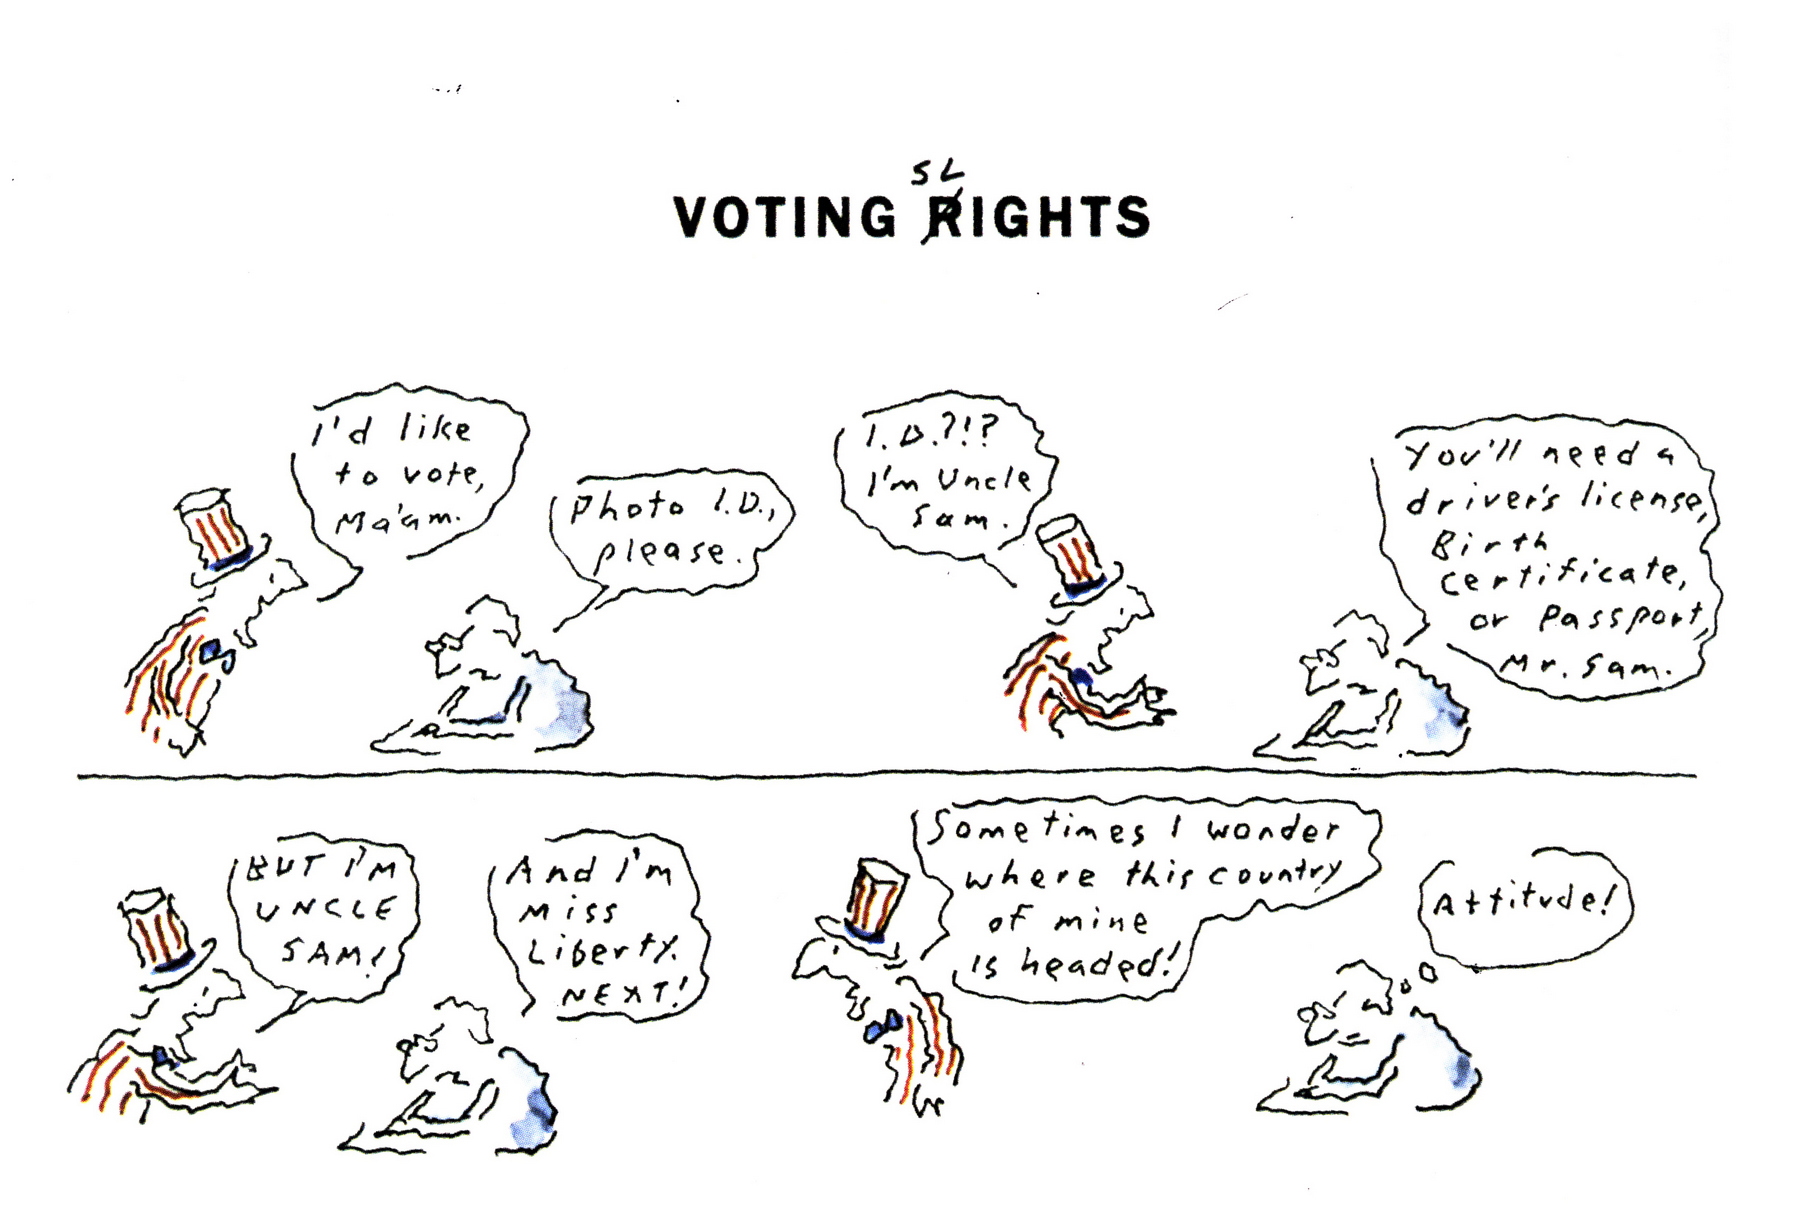 SL
VOTING RIGHTS
I'd like
to vote,
Ma'am.
Photo I.D.,
please.
I.D.?!?
I'm Uncle
Sam.
You'll need a
driver's license,
Birth
certificate,
or Passport,
Mr. Sam.
BUT I'M
UNCLE
SAM!
And I'm
Miss
Liberty.
NEXT!
Sometimes I wonder
where this country
of mine
is headed!
Attitude!